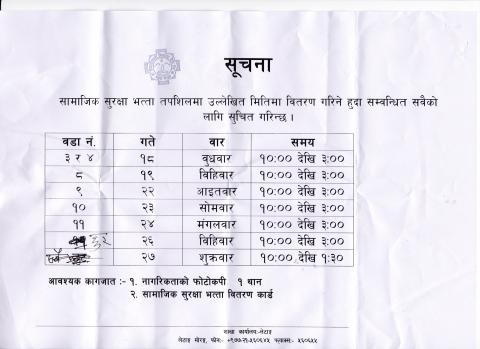 सूचना
सामाजिक सुरक्षा भत्ता तपशिलमा उल्लेखित मितिमा वितरण गरिने हुदा सम्बन्धित सवैको
लागि सुचित गरिन्छ ।
वडा नं. गते वार समय
३ र ४ १८ वुधवार १०:०० देखि ३:००
८ १९ विहिवार १०:०० देखि ३:००
९ २२ आइतवार १०:०० देखि ३:००
१० २३ सोमवार १०:०० देखि ३:००
११ २४ मंगलवार १०:०० देखि ३:००
२६ विहिवार १०:०० देखि ३:००
२७ शुक्रवार १०:०० देखि १:३०
आवश्यक कागजात :- १. नागरिकताको फोटोकपी १ थान
२. सामाजिक सुरक्षा भत्ता वितरण कार्ड
शाखा कार्यालय-लेटाङ
लेटाङ मोरङ, फोन:- +९७७-२१-५६०६४५ फ्याक्स:- ५६०६५५